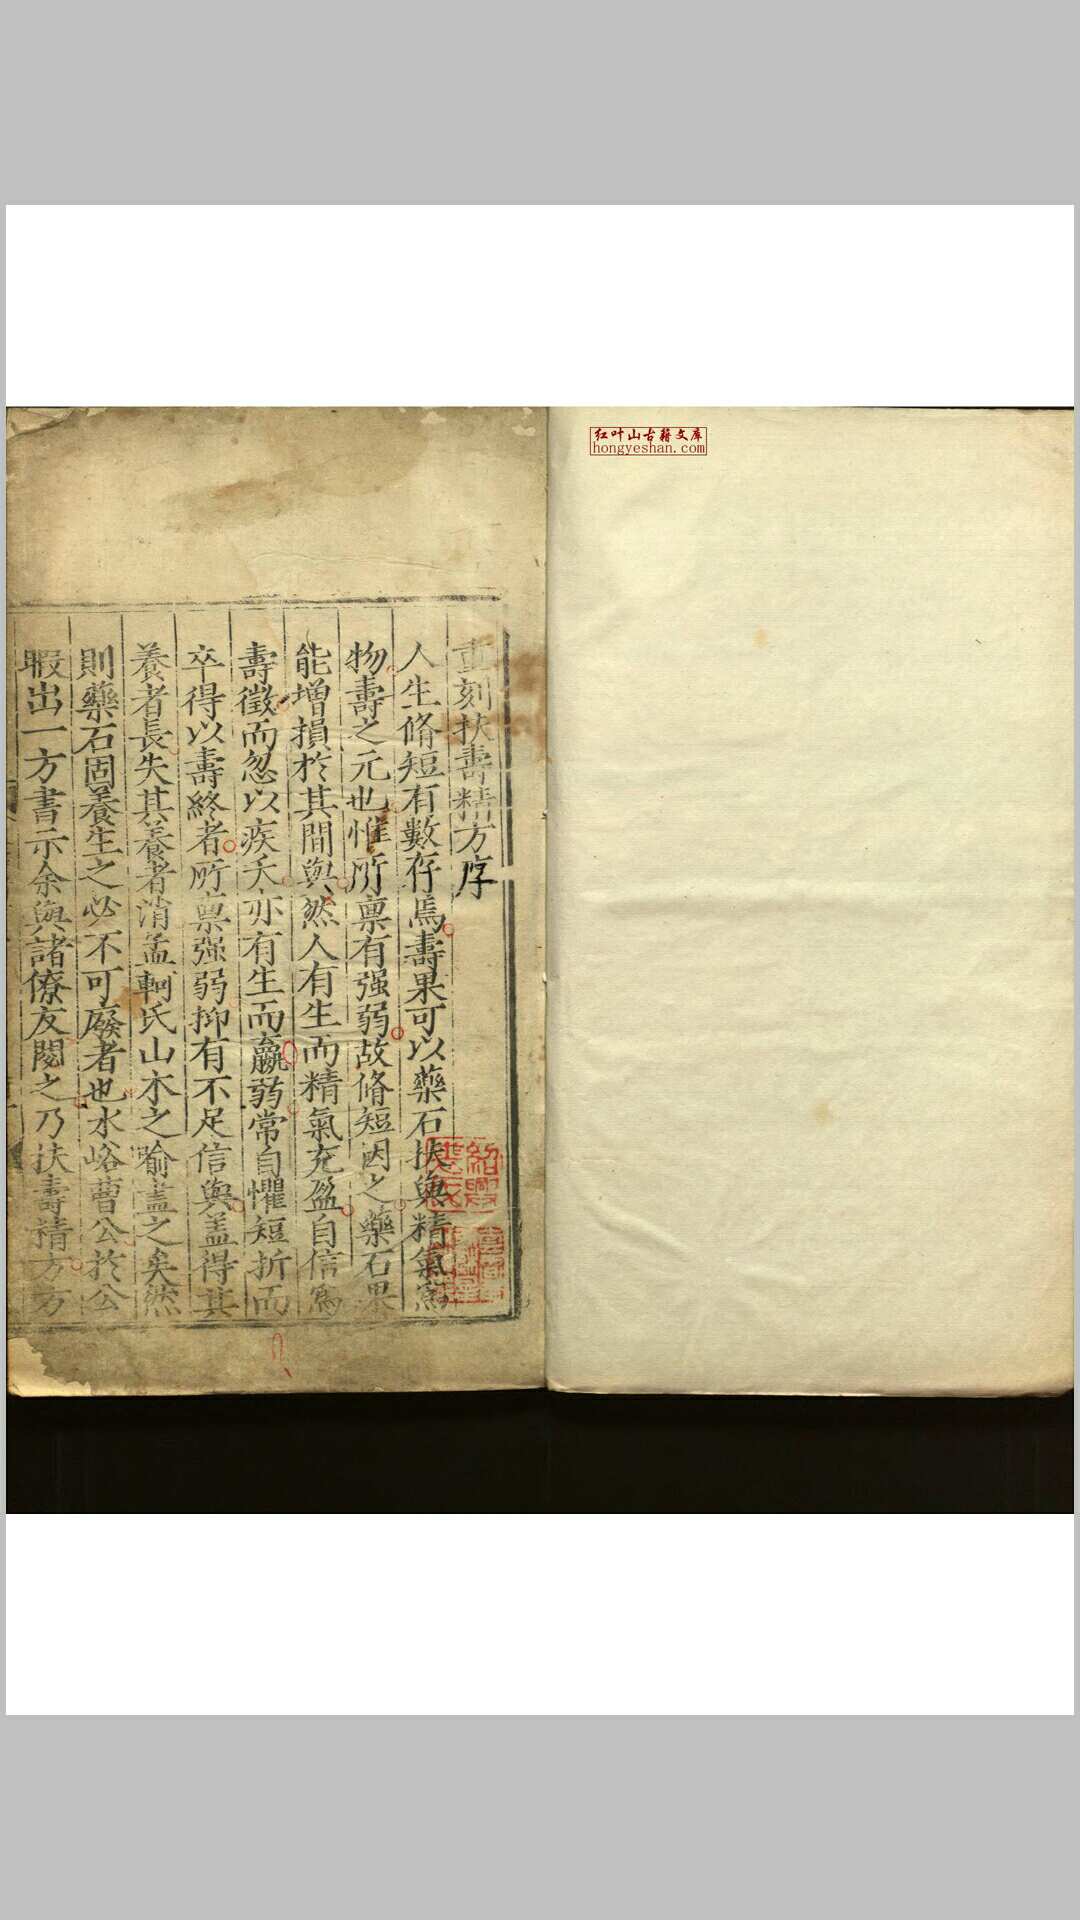 红叶山古籍文库
hongyeshan.com
重刻扶壽精方序
人生脩短有數存焉壽果可以藥石扶與精氣爲
物壽之元也惟所禀有强弱故脩短因之藥石果
能增損於其間與然人有生而精氣充盈自信爲
壽徵而忽以疾夭亦有生而羸弱常自懼短折而
卒得以壽終者所禀强弱抑有不足信與盖得其
養者長失其養者消孟軻氏山木之喻盡之矣然
則藥石固養生之必不可廢者也水峪曹公於公
暇出一方書示余與諸僚友閱之乃扶壽精方方